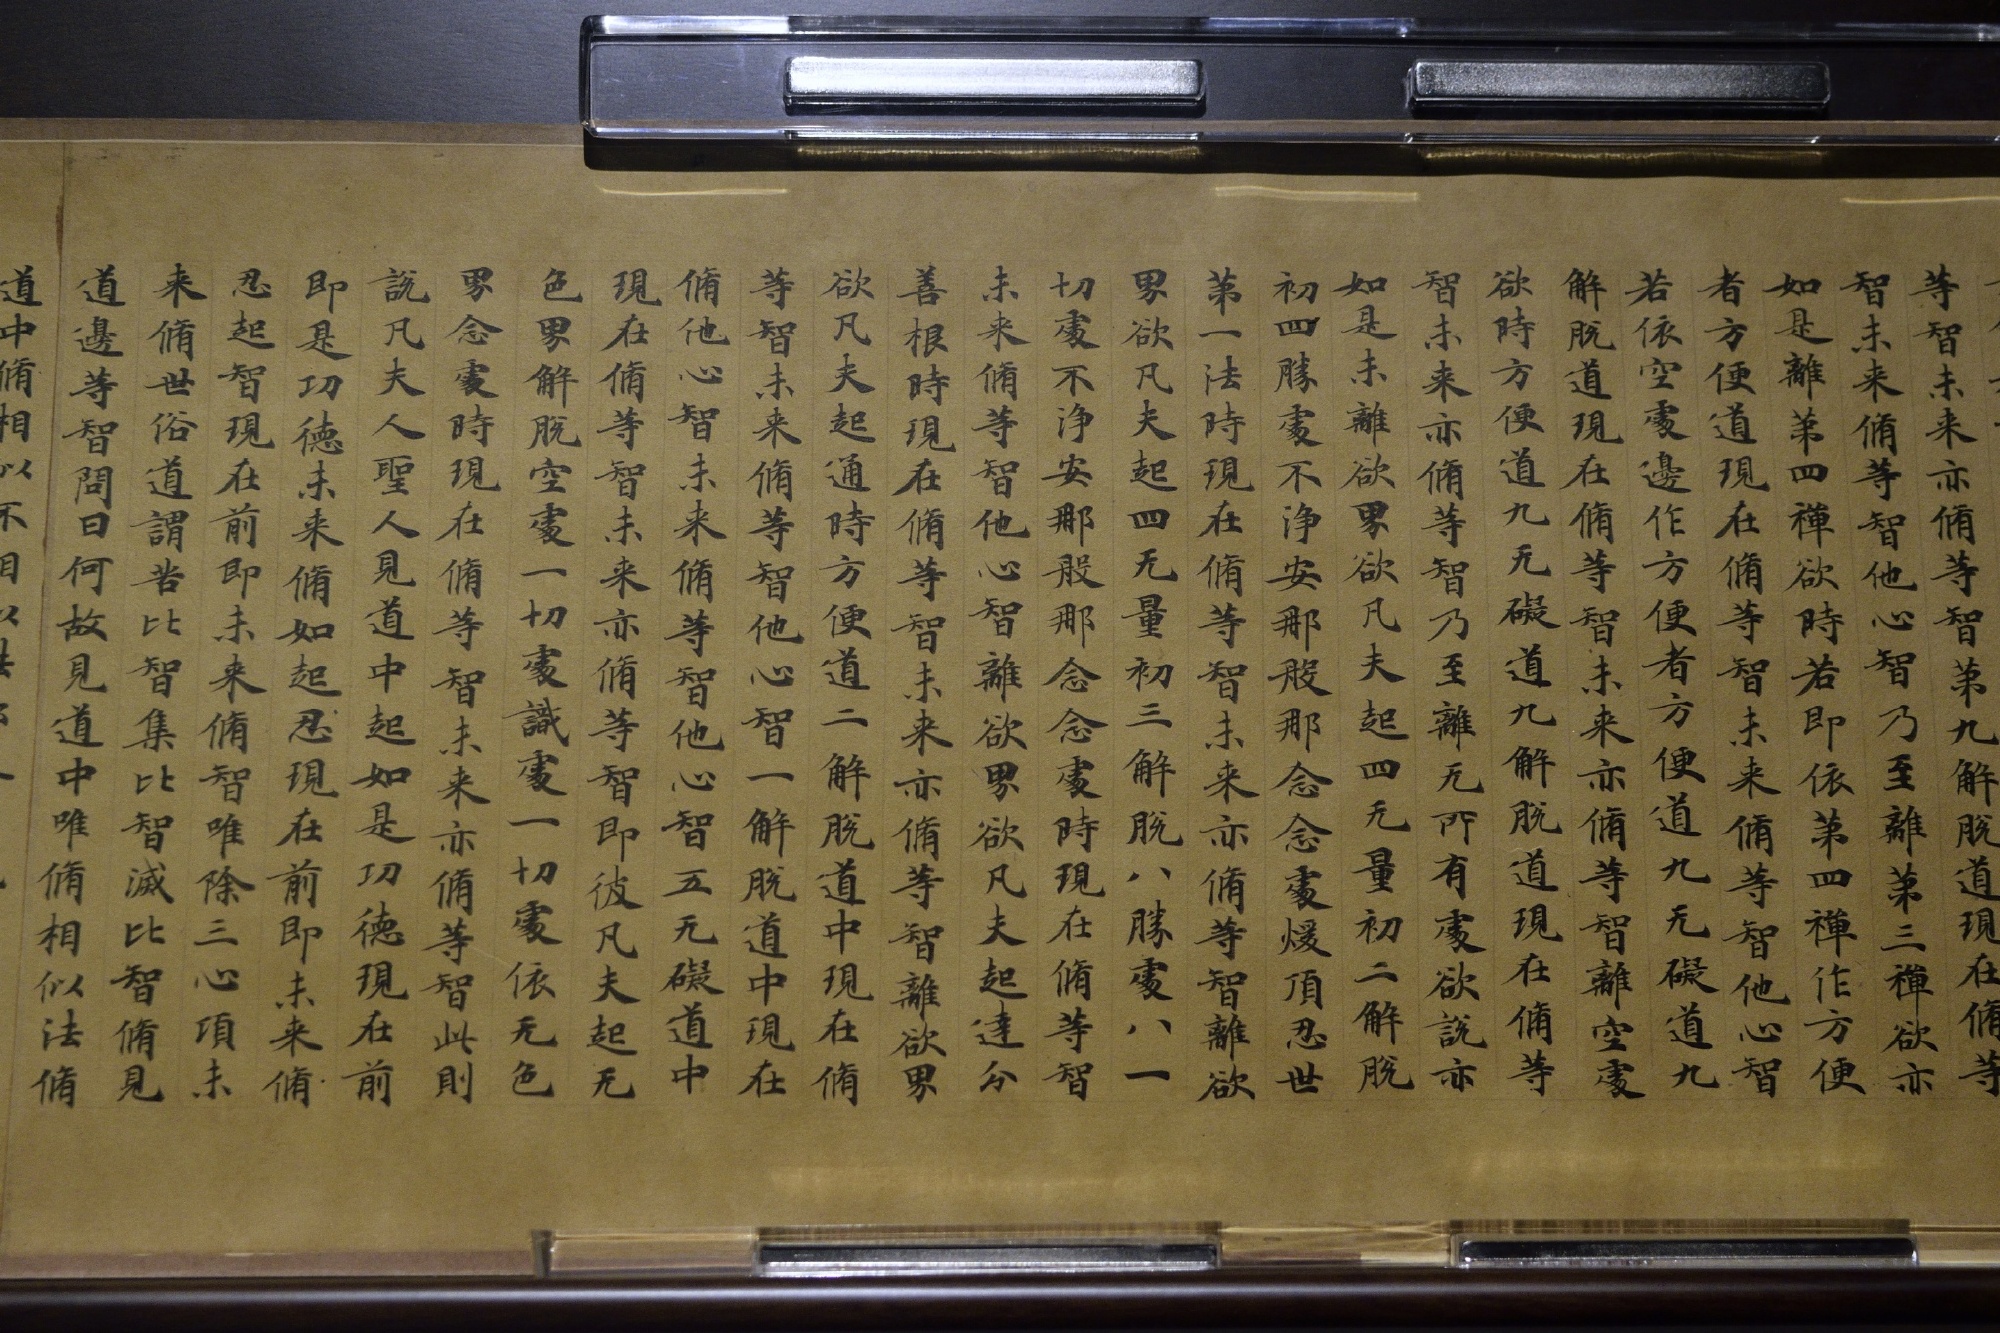 等智未来亦脩等智第九解脫道現在脩等
智未来脩等智他心智乃至離第三禪欲亦
如是離第四禪欲時若即依第四禪作方便
者方便道現在脩等智未来脩等智他心智
若依空處邊作方便者方便道九无礙道九
解脫道現在脩等智未来亦脩等智離空處
欲時方便道九无礙道九解脫道現在脩等
智未来亦脩等智乃至離无所有處欲說亦
如是未離欲界欲凡夫起四无量初二解脫
初四勝處不淨安那般那念念處煖頂忍世
第一法時現在脩等智未来亦脩等智離欲
界欲凡夫起四无量初三解脫八勝處八一
切處不淨安那般那念念處時現在脩等智
未来脩等智他心智離欲界欲凡夫起達分
善根時現在脩等智未来亦脩等智離欲界
欲凡夫起通時方便道二解脫道中現在脩
等智未来脩等智他心智一解脫道中現在
脩他心智未来脩等智他心智五无礙道中
現在脩等智未来亦脩等智即彼凡夫起无
色界解脫空處一切處識處一切處依无色
界念處時現在脩等智未来亦脩等智此則
說凡夫人聖人見道中起如是功德現在前
即是功德未来脩如起忍現在前即未来脩
忍起智現在前即未来脩智唯除三心項未
来脩世俗道謂苦比智集比智滅比智脩見
道邊等智問曰何故見道中唯脩相似法脩
道中脩相似不相似法